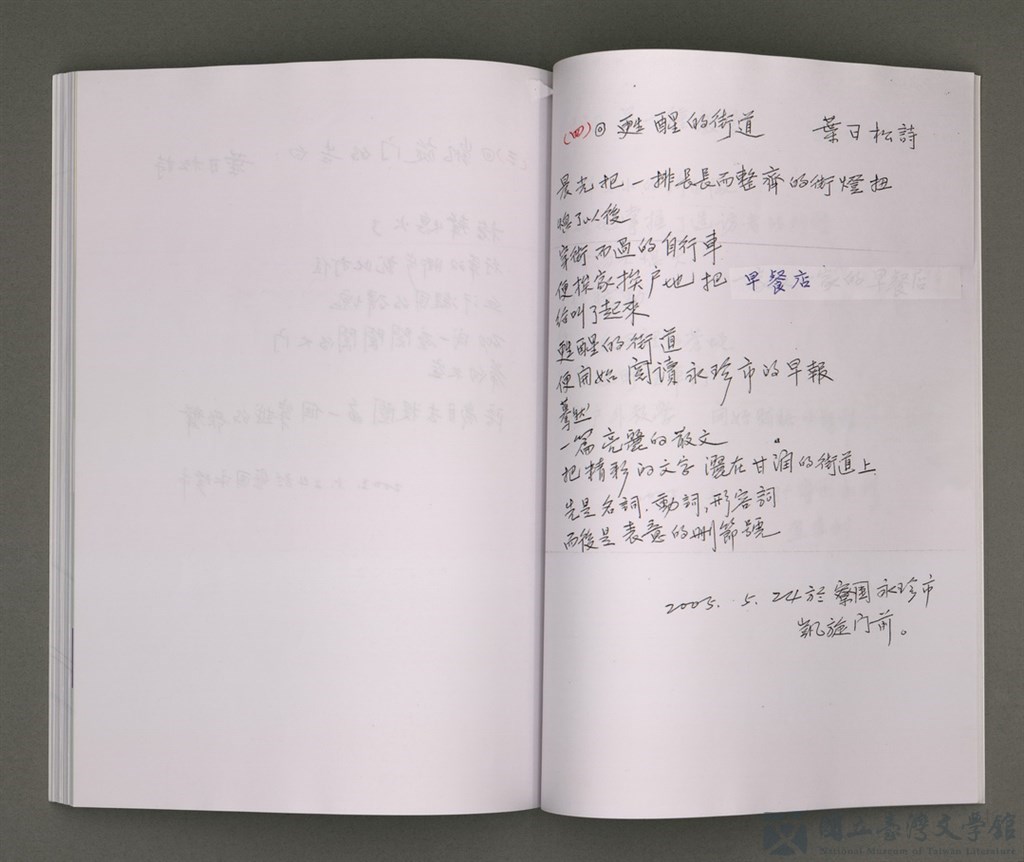 (四)◎ 甦醒的街道 葉日松詩
晨光把一排長長而整齊的街燈扭
熄了以後
穿街而過的自行車
便挨家挨户地把 早餐店
給叫了起來
甦醒的街道
便開始 閱讀永珍市的早報
驀然
一篇亮麗的散文
把精彩的文字 灑在甘润的街道上
先是名詞、動詞,形容詞
而後是表意的刪節號
2005. 5. 24於寮国永珍市
凱旋门前。
國立臺灣文學館
National Museum of Taiwan Literature